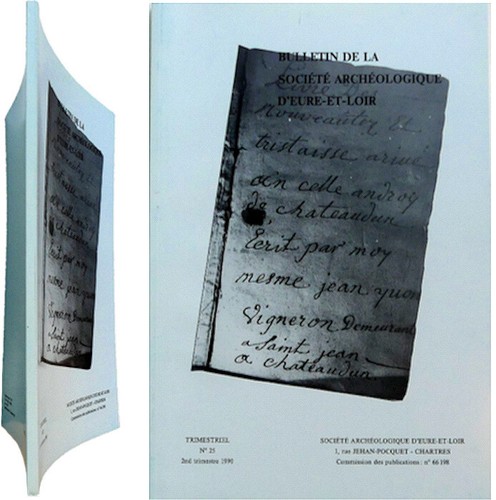 BULLETIN DE LA
SOCIÉTÉ ARCHÉOLOGIQUE
D'EURE-ET-LOIR
Livre Des
nouveautez Et
tristaisse arivé
en celle androy
de chateaudun
Ecrit par moy
mesme jean yuon
Vigneron Demeurant
a Saint jean
a chateaudun
TRIMESTRIEL
N° 25
2nd trimestre 1990
SOCIÉTÉ ARCHÉOLOGIQUE D'EURE-ET-LOIR
1, rue JEHAN-POCQUET - CHARTRES
Commission des publications : n° 66 198